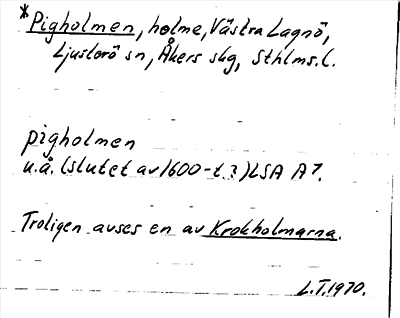 *Pigholmen, holme, Västra Lagnö,
Ljusterö sn, Åkers skg, Sthlms.l.
pigholmen
u.å. (slutet av 1600-t.?) LSA A7.
Troligen avses en av Krokholmarna.
L.T. 1970.